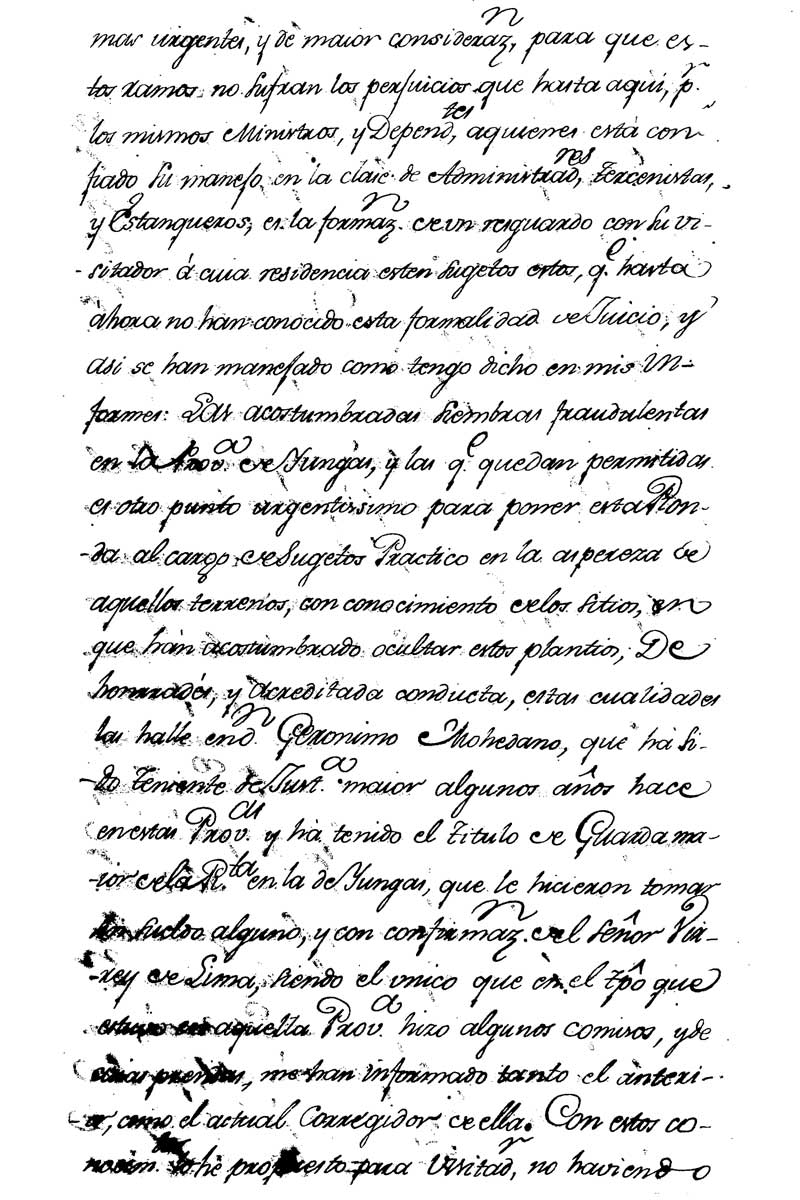 mas urgentes, y de maior consideraz.n, para que es-
tos ramos no sufran los perjuicios que hasta aqui, p.r
los mismos Ministros, y Depend.tes, aquienes está con
fiado su manejo en la clase de Administrad.res, Tercenistas,
y Estanqueros, es la formaz.n de un resguardo con su vi-
-sitador á cuia residencia esten sugetos estos, q.e hasta
ahora no han conocido esta formalidad de Juicio, y
asi se han manejado como tengo dicho en mis In-
formes: Las acostumbradas siembras fraudulentas
en la Prov.a de Yungas, y las q.e quedan permitidas
es otro punto urgentissimo para poner esta Ron-
-da al cargo de sugetos Practico en la aspereza de
aquellos terrenos, con conocimiento delos sitios, en
que han acostumbrado ocultar estos plantios, De
honrradés, y acreditada conducta, estas cualidades
las halle en d.n Geronimo Mohedano, que há si-
-do Teniente de Just.a maior algunos años hace
en estas Prov.as y ha tenido el titulo de Guarda ma-
-ior dela R.ta en la de Yungas, que le hicieron tomar
sin sueldo alguno, y con confirmaz.n del señor Vir-
-rey de Lima, siendo el unico que en el tpô que
estuvo en aquella Prov.a hizo algunos comisos, y de
cuias prendas, me han informado tanto el anteri-
-or, como el actual Corregidor de ella. Con estos co-
nocim.tos lo he propuesto para Visitad.r, no haviendo